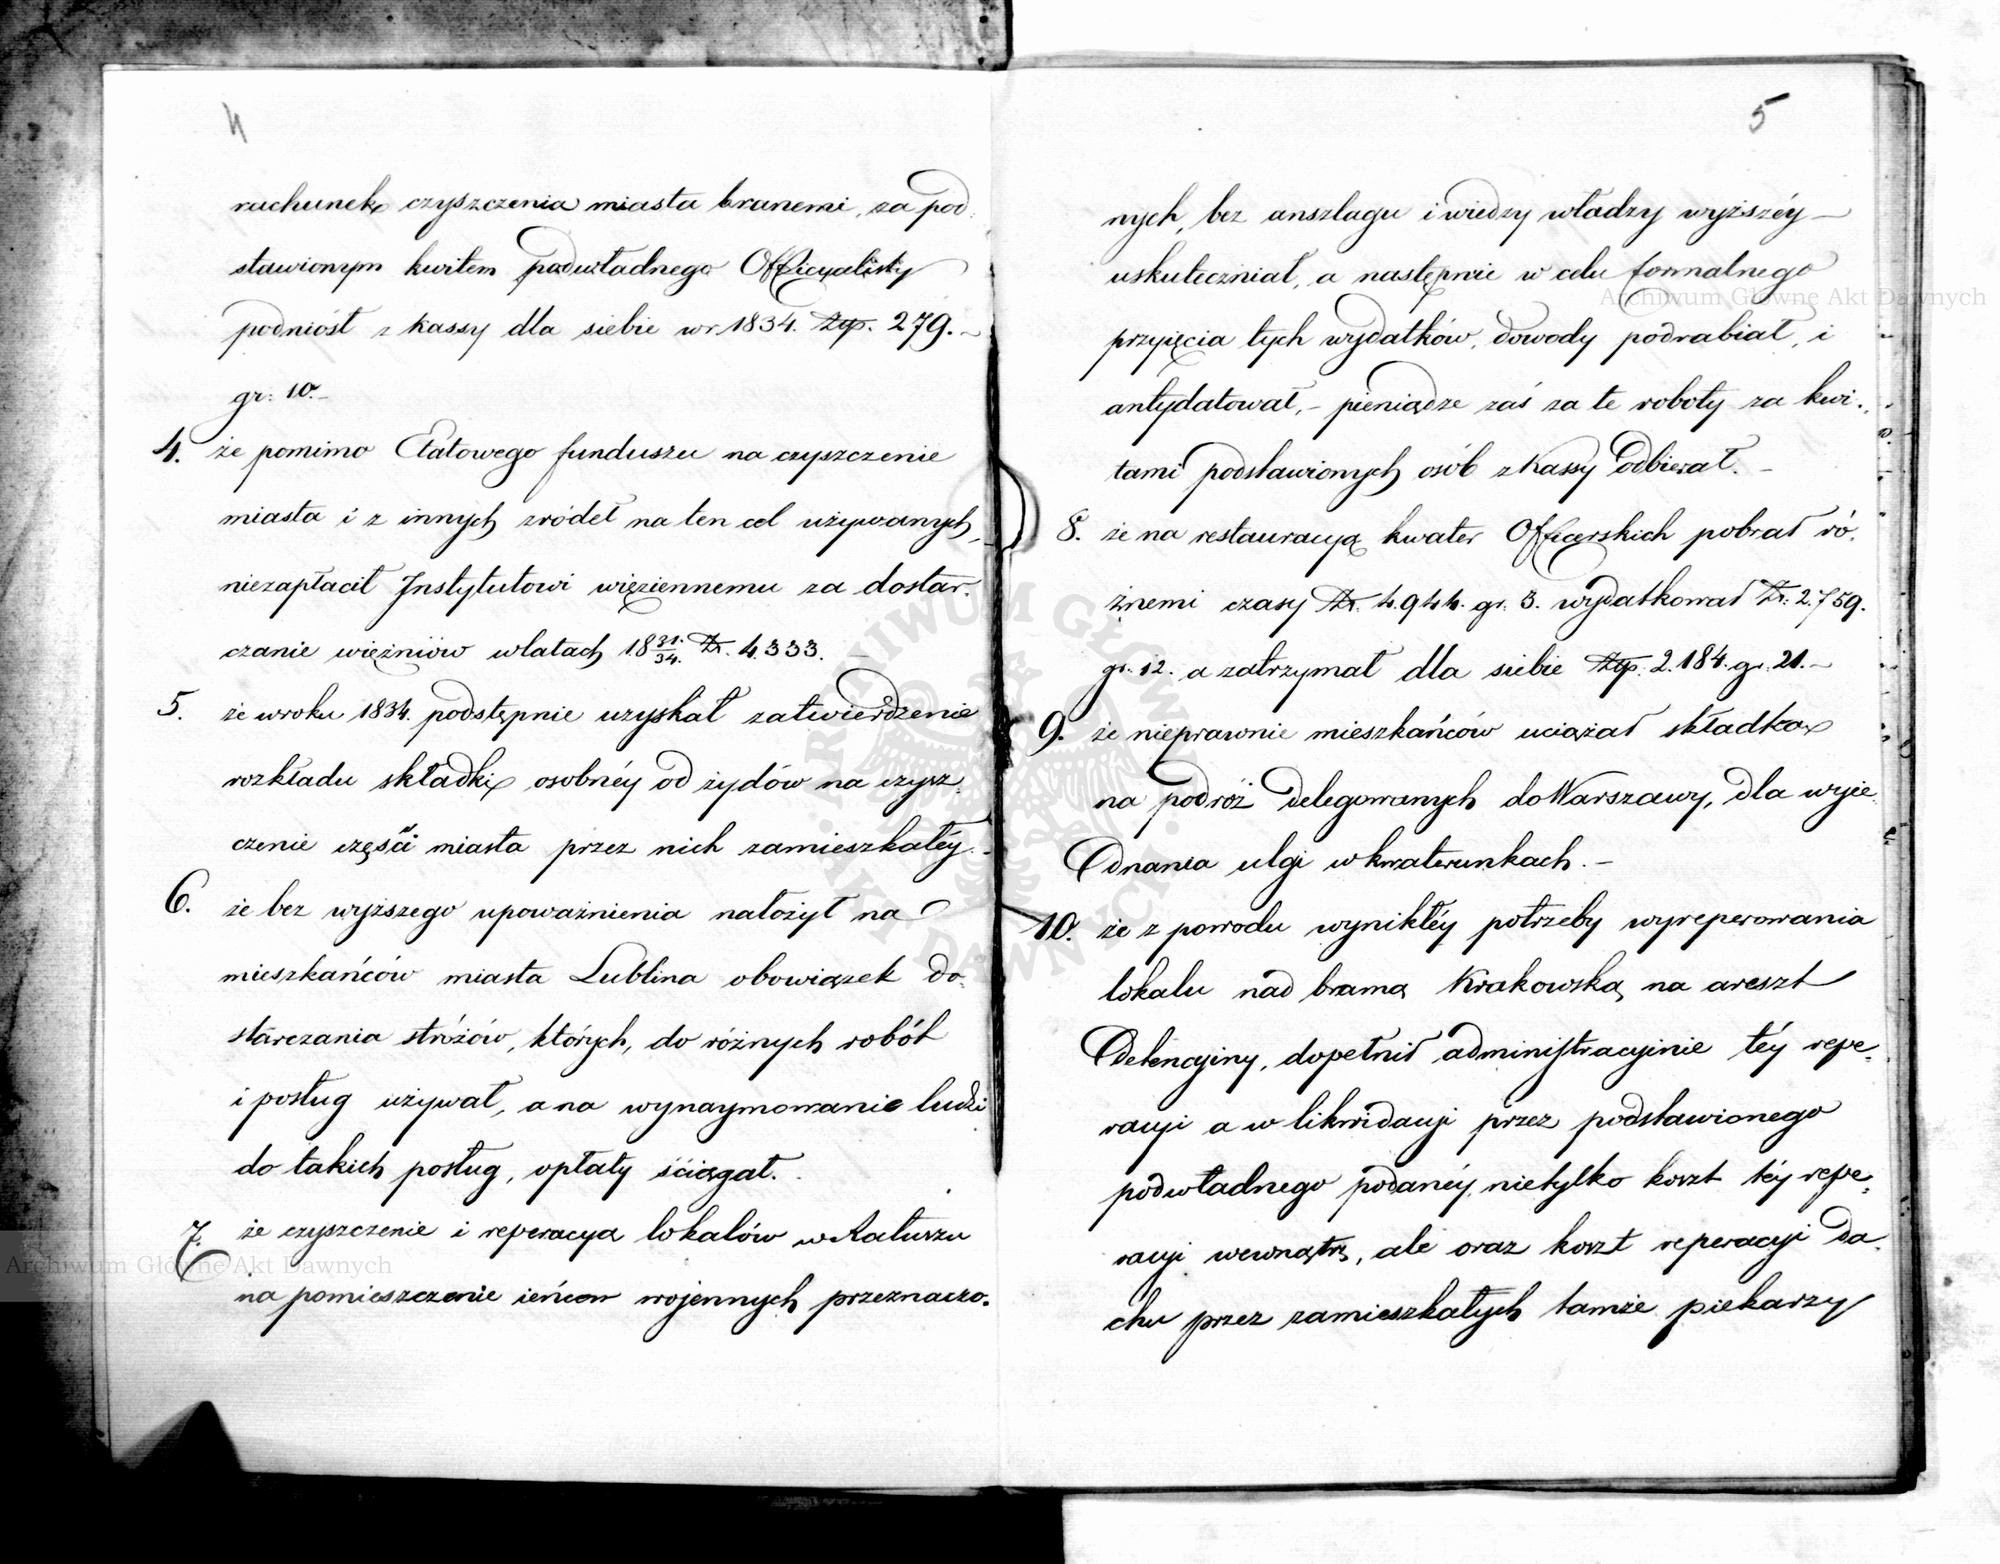 4
rachunek czyszczenia miasta branemi, za pod:
stawionym kwitem podwładnego Officyalisty
podniósł z Kassy dla siebie w r. 1834. Złp. 279.–
gr: 10.–
4. że pomimo Etatowego funduszu na czyszczenie
miasta i z innych źródeł na ten cel używanych,
niezapłacił Instytutowi więziennemu za dostar:
czanie więźniów w latach 18 31/34. Zł. 4333.
5. że w roku 1834. podstępnie uzyskał zatwierdzenie
rozkładu składki osobnéy od żydów na czysz:
czenie części miasta przez nich zamieszkałéy.
6. że bez wyższego upoważnienia nałożył na
mieszkańców miasta Lublina obowiązek do:
starczania stróżów, których, do różnych robót
i posług używał, a na wynaymowanie ludzi
do takich posług, opłaty ściągał.
7. że czyszczenie i reperacya lokalów w Ratuszu
na pomieszczenie ieńcow wojennych przeznaczo:
5
nych, bez anszlagu i wiedzy władzy wyższéy –
uskuteczniał, a następnie w celu formalnego
przyięcia tych wydatków, dowody podrabiał, i
antydatował, – pieniądze zaś za te roboty za kwi:
tami podstawionych osób z Kassy odbierał. –
8. że na restauracyą kwater Officerskich pobrał ró:
żnemi czasy Zł. 4.944. gr. 3. wydatkował Zł. 2.759.
gr. 12. a zatrzymał dla siebie Złp. 2.184. gr. 21. –
9. że nieprawnie mieszkańców uciążał składką
na podróż delegowanych do Warszawy, dla wyie:
dnania ulgi w kwaterunkach. –
10. że z powodu wynikłéy potrzeby wyreperowania
lokalu nad bramą Krakowską na areszt
Detencyiny, dopełnił administracyinie téy repe:
racyi a w likwidacyi przez podstawionego
podwładnego podanéy, nietylko koszt téy repe:
racyi wewnątrz, ale oraz koszt reperacyi da:
chu przez zamieszkałych tamże piekarzy
Archiwum Główne Akt Dawnych
Archiwum Główne Akt Dawnych
ARCHIWUM GŁÓWNE AKT DAWNYCH